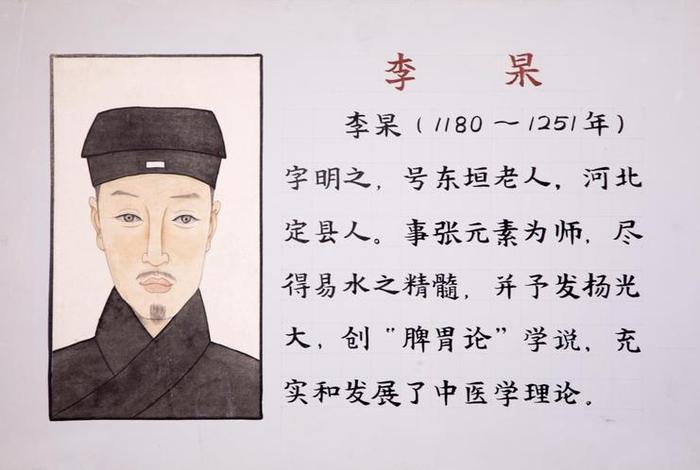 李 杲
李杲（1180～1251年）
字明之，号东垣老人，河北
定县人。事张元素为师，尽
得易水之精髓，并予发扬光
大，创“脾胃论”学说，充
实和发展了中医学理论。